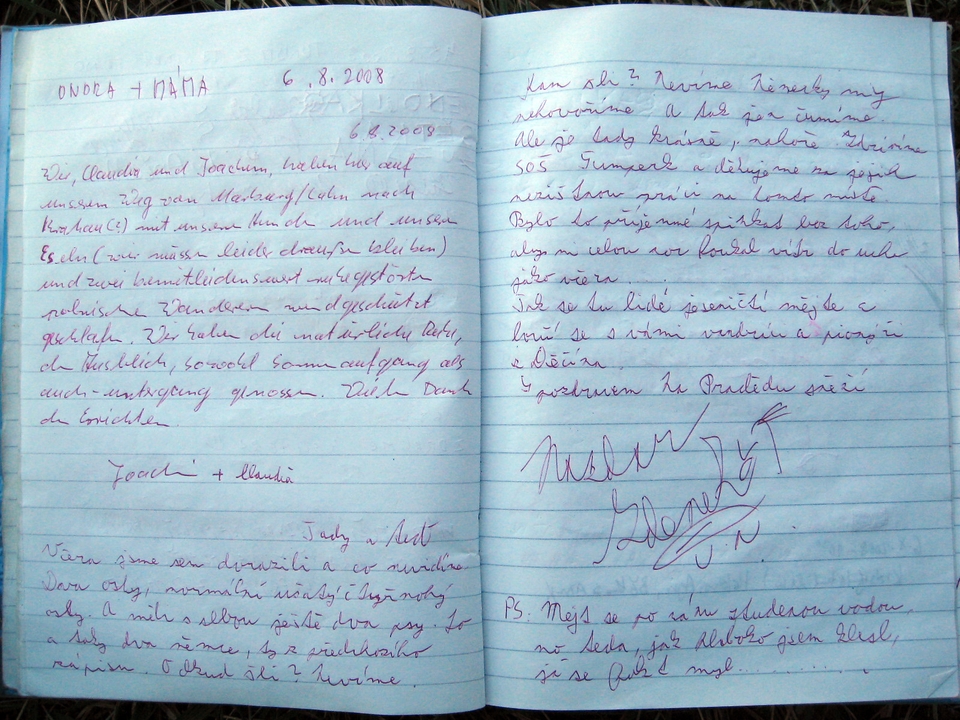 ONDRA + MÁMA 6.8.2008
6.8.2008
Wir, Claudia und Joachim, haben hier auf
unserem Weg von Marburg/Lahn nach
Krakau(?) mit unseren Hunden und unseren
Eseln (wir müssen leider draußen bleiben)
und zwei bemitleidenswert ruhegestörten
polnischen Wanderern windgeschützt
geschlafen. Wir haben die natürliche Ruhe,
den Ausblick, sowohl Sonnenaufgang als
auch -untergang genossen. Vielen Dank
den Errichtern.
Joachim + Claudia
Tady a teď
Včera jsme sem dorazili a co nevidíme
Dva osly, normální ušatý čtyřnohý
osly. A měli s sebou ještě dva psy. Jo
a taky dva němce, ty z předchozího
zápisu. Odkud šli? Nevíme.
Kam šli? Nevíme Německy my
nehovoříme A tak jen čumíme.
Ale je tady krásně, nahoře. Zdravíme
SOŠ Šumperk a děkujeme za jejich
nezištnou práci na tomto místě.
Bylo to příjemné spinkat bez toho,
aby mi celou noc foukal vítr do ucha
jako včera...
Tak se tu lidé jeseničtí mějte a
loučí se s vámi vandráci a
z Děčína.
S pozdravem Na Pradědu sněží
Zdeněk
Ps. Mějt se po ránu studenou vodou,
no teda, jak hluboko jsem klesl,
já se fakt myl..........